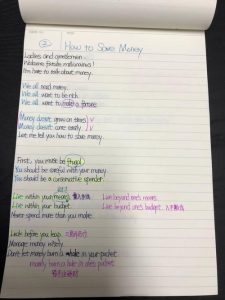 ② How to Save Money
Ladies and gentlemen
Welcome, future millionaires!
I'm here to talk about money.
We all need money.
We all want to be rich.
We all want to make a fortune.
Money doesn't grow on trees
Money doesn't come easily.
Let me tell you how to save money.
First, you must be frugal
You should be careful with your money.
You should be a conservative spender.
Live within your means. Live beyond one's means.
Live within your budget. Live beyond one's budget.
Never spend more than you make.
Look before you leap.
Manage money wisely.
Don't let money burn a hole in your pocket
money burns a hole in one's pocket